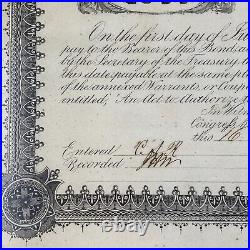 On the first day of
pay to the Bearer of this Bond, a
by the Secretary of the Treasury
this date payable at the same p
of the annexed Warrants or Coupo
entitled, An Act to Authorize
In Wit
Congress
this
Entered
Recorded